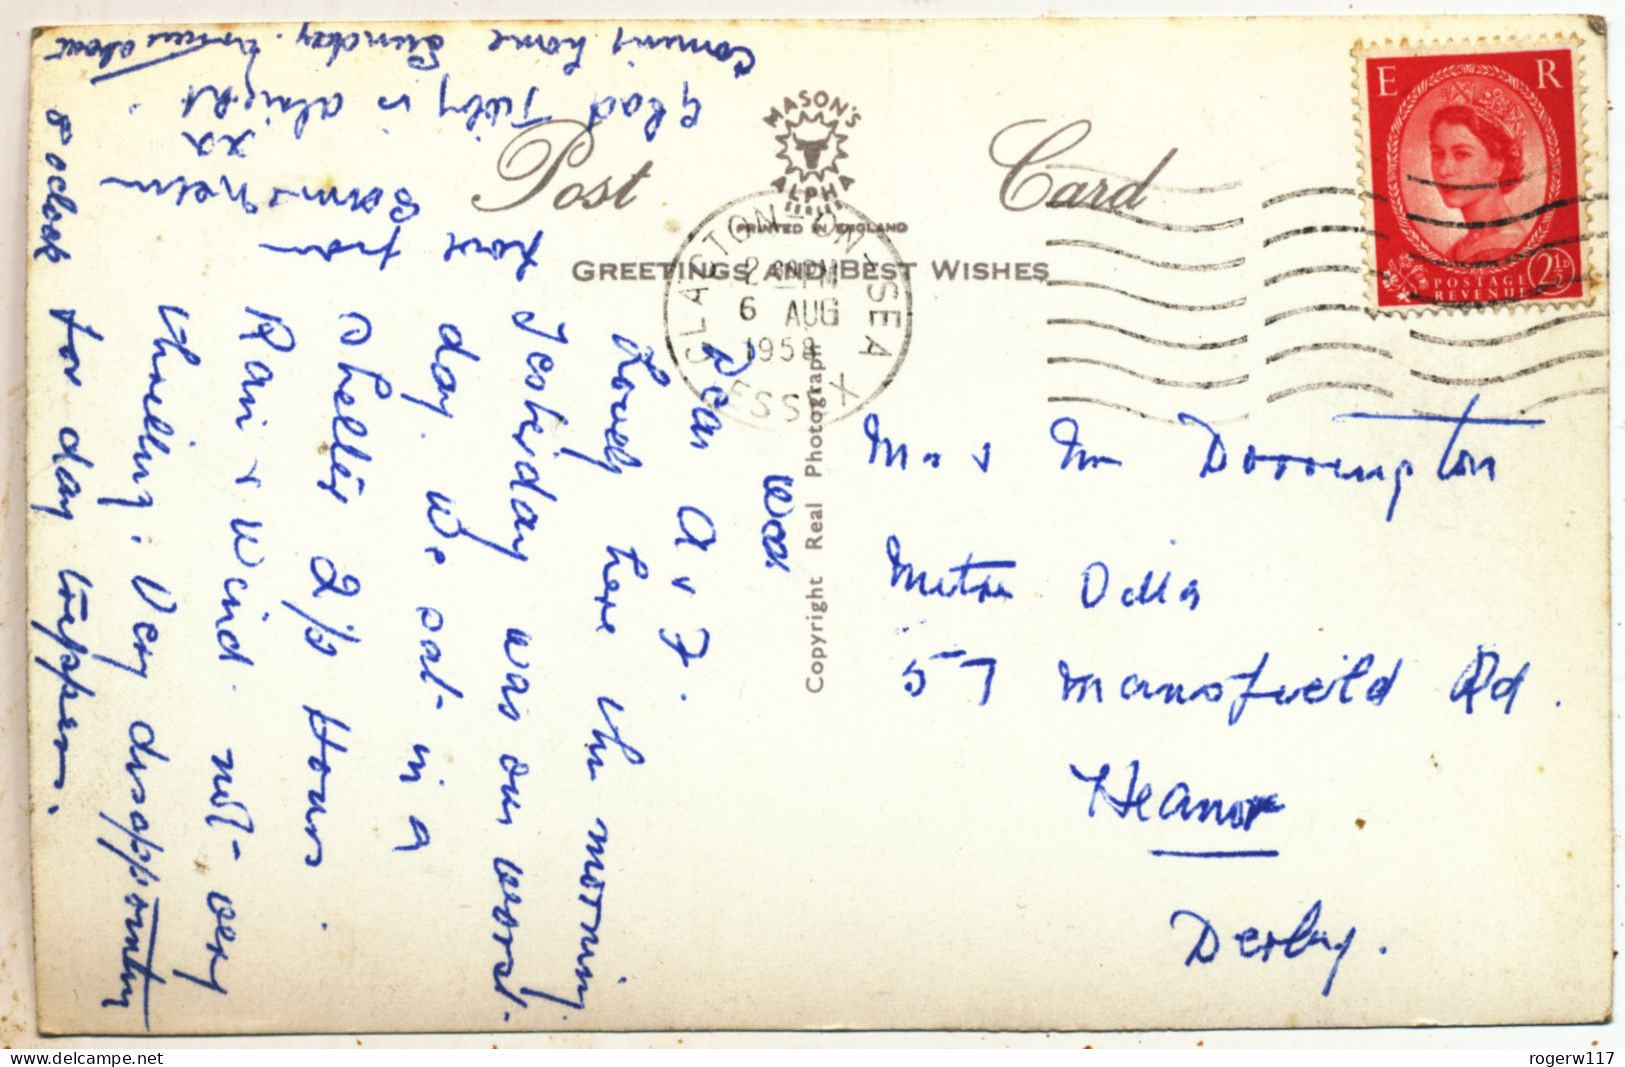 Post Card
MASON'S
ALPHA
SERIES
PRINTED IN ENGLAND
GREETINGS AND BEST WISHES
Copyright Real Photograph
CLACTON-ON-SEA
ESSEX
2 PM
6 AUG
1958
E R
POSTAGE
REVENUE
2½
Wed
Dear A & F.
Lovely here this morning
Yesterday was our worst
day. We sat in a
shelter 2½ Hours.
Rain & Wind. not very
thrilling. Very disappointing
for day trippers.
Coming home Sunday. about
8 oclock
Glad Tibby is alright.
love from
Sam & Nem
xx
Mr & Mrs Dorrington
Mitre Villa
57 Mansfield Rd.
Heanor
Derby.
rogerw117